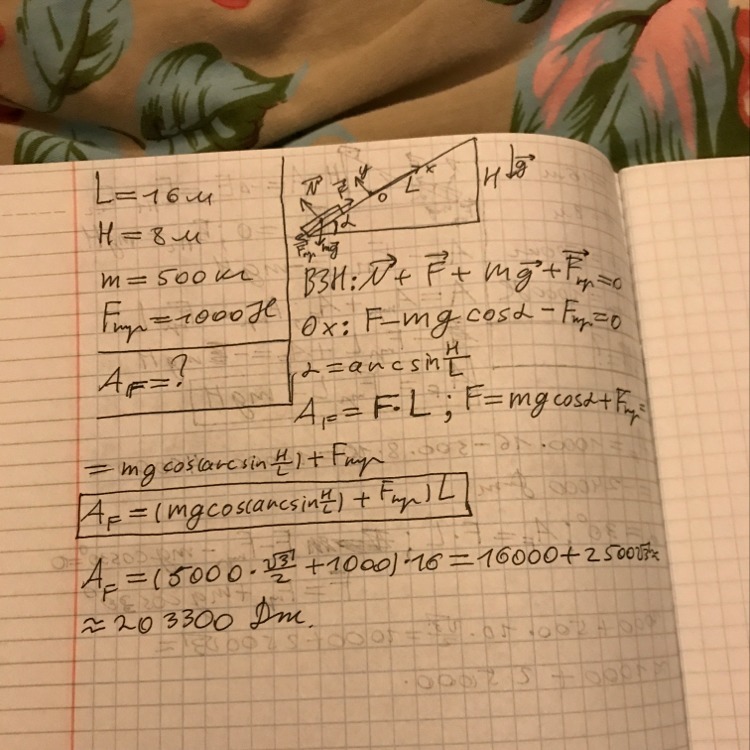 L=16 м
H=8 м
m=500 кг
Fтр=1000 Н
A_F=?
N⃗ F⃗ y x O L H g⃗
α
F⃗тр mg⃗
ВЗН: N⃗ + F⃗ + mg⃗ + F⃗тр=0
Ox: F-mg cosα - Fтр=0
α=arcsin H/L
A_F= F·L ; F=mg cosα+Fтр=
= mg cos(arcsin H/L) + Fтр
A_F=(mg cos(arcsin H/L) + Fтр) L
A_F=(5000·√3/2 +1000)·16=16000+2500√3≈
≈203300 Дж.